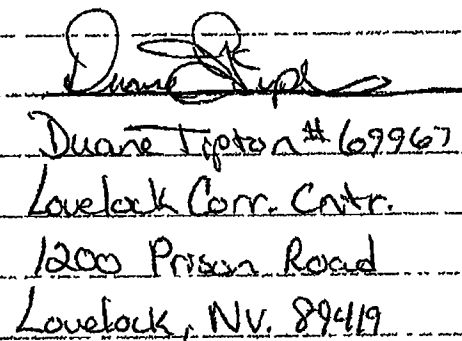 Duane Tipton
Duane Tipton #69967
Lovelock Corr. Cntr.
1200 Prison Road
Lovelock, NV. 89419